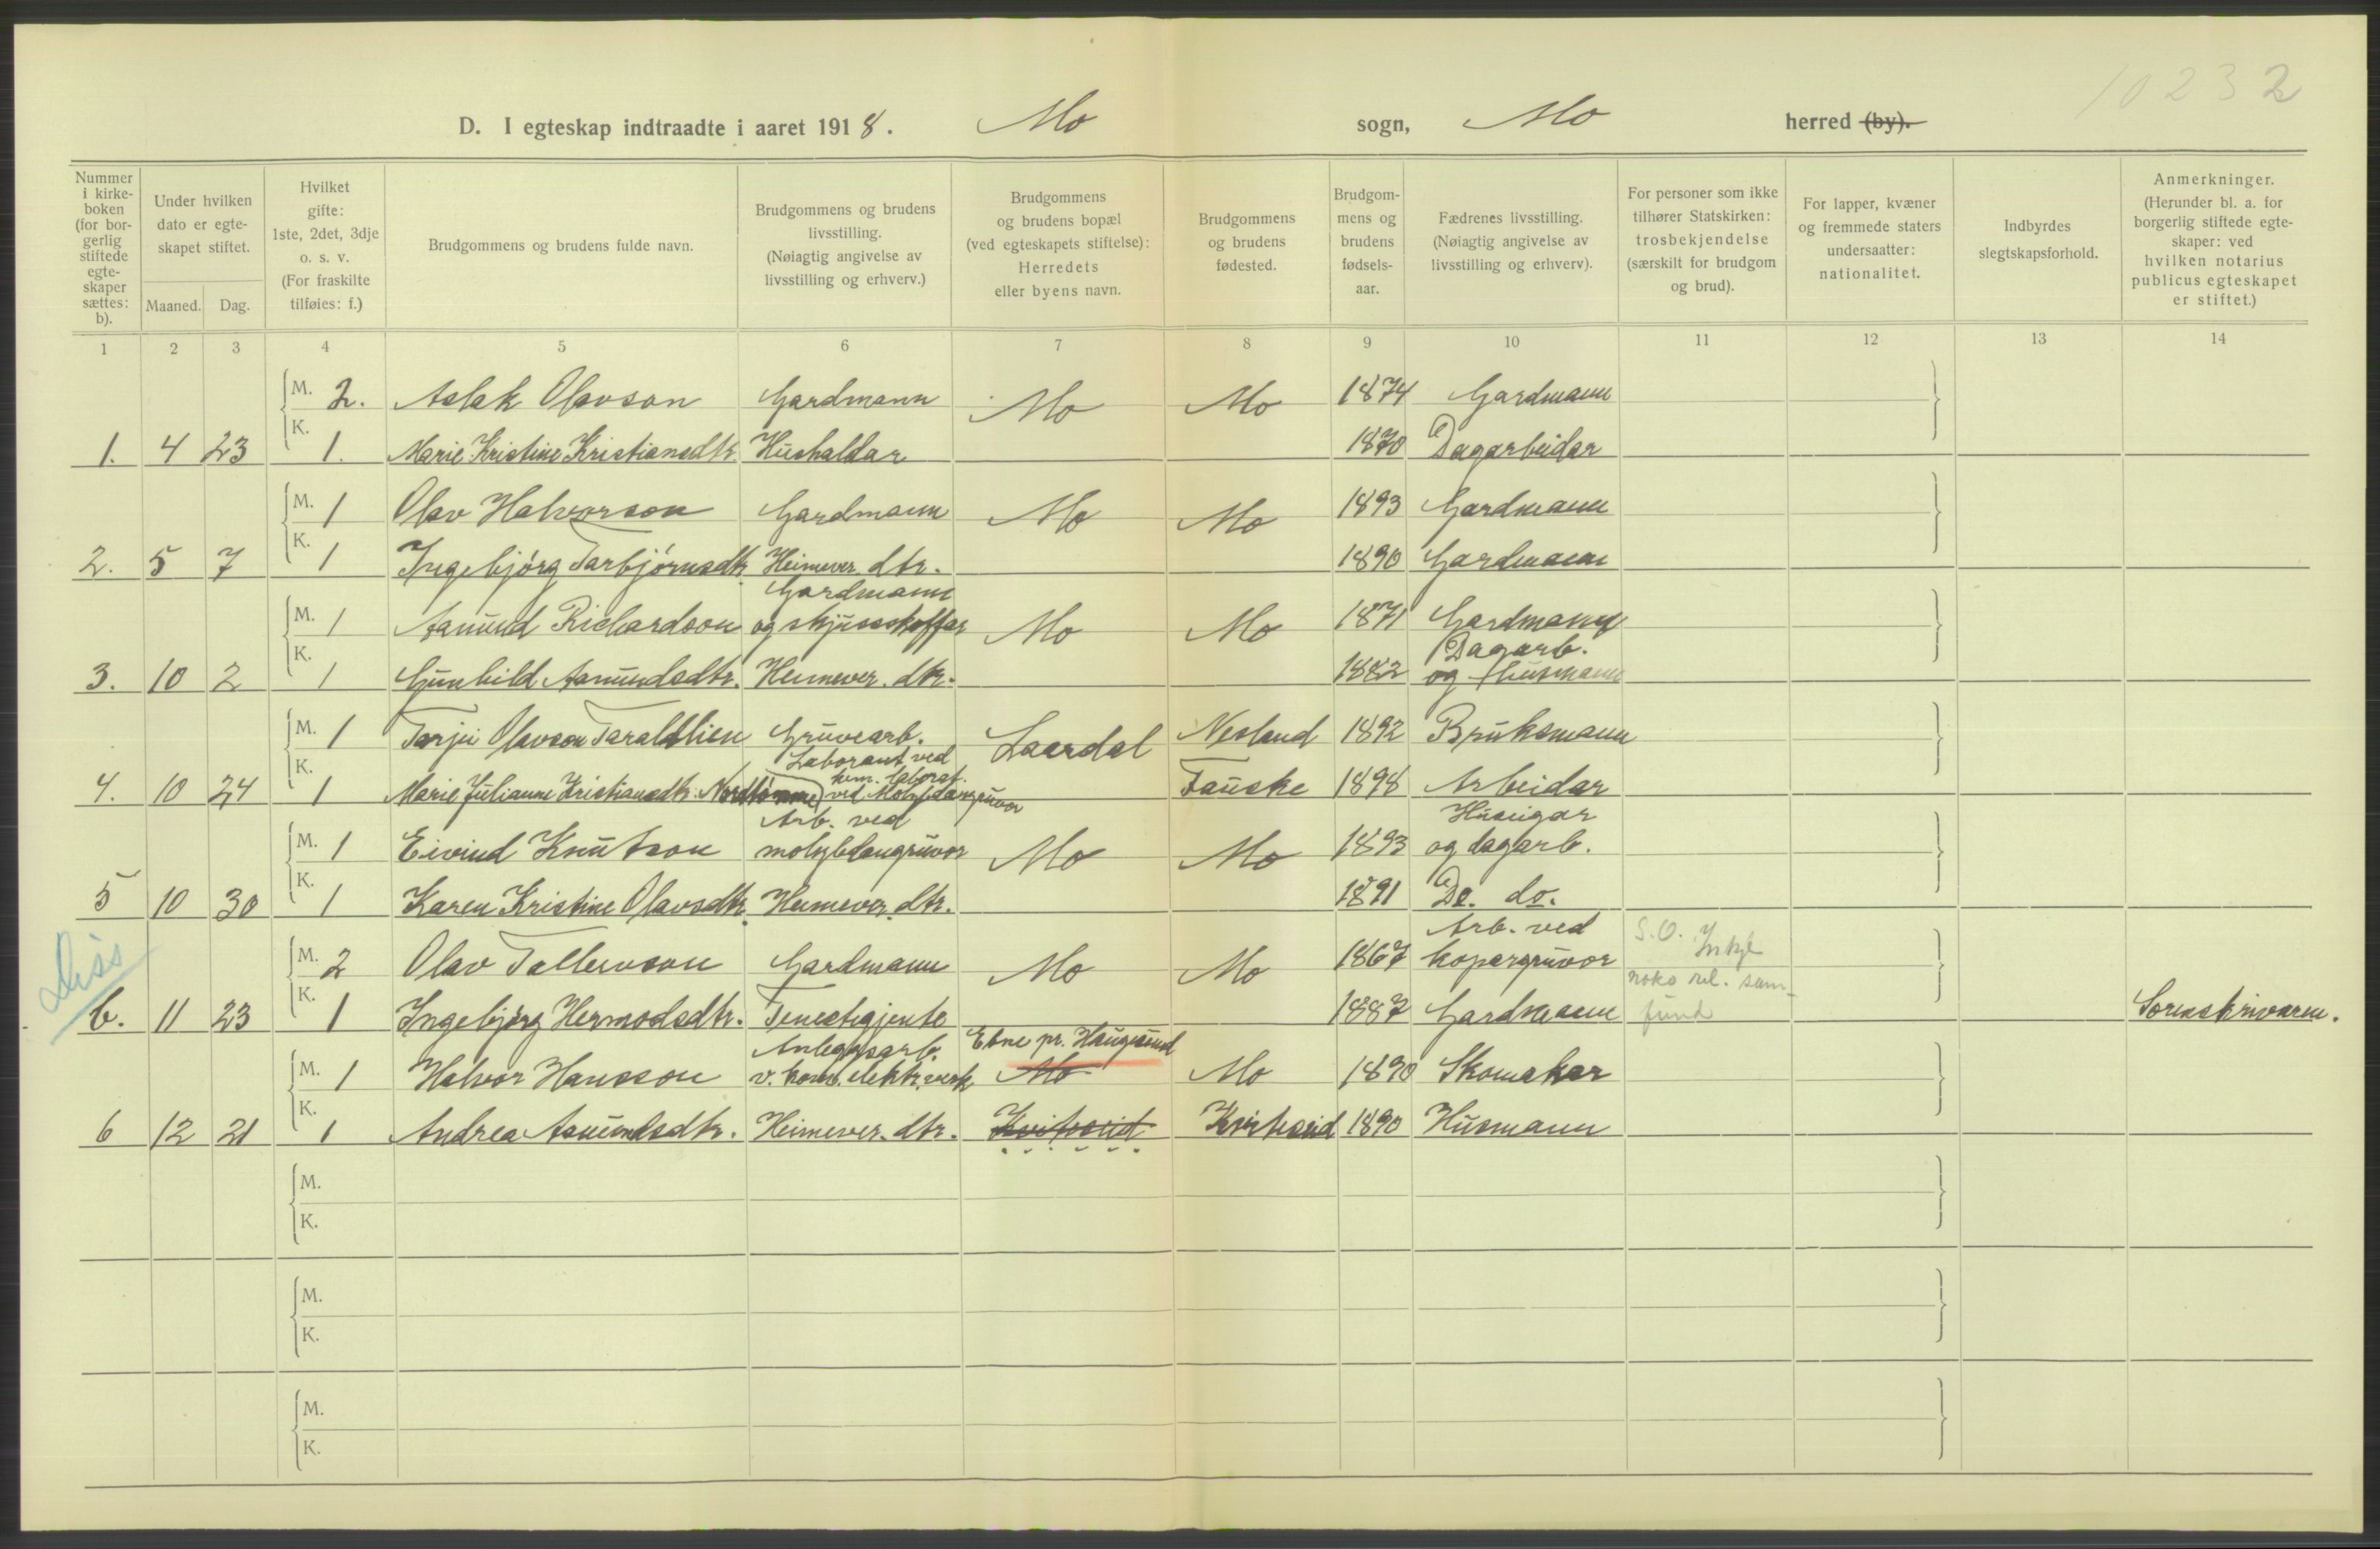 10232
D. I egteskap indtraadte i aaret 1918. Mo sogn, Mo herred (by).
Nummer i kirkeboken (for borgerlig stiftede egteskaper sættes: b).
Under hvilken dato er egteskapet stiftet.
Maaned. Dag.
Hvilket gifte: 1ste, 2det, 3dje o. s. v. (For fraskilte tilføies: f.)
Brudgommens og brudens fulde navn.
Brudgommens og brudens livsstilling. (Nøiagtig angivelse av livsstilling og erhverv.)
Brudgommens og brudens bopæl (ved egteskapets stiftelse): Herredets eller byens navn.
Brudgommens og brudens fødested.
Brudgommens og brudens fødselsaar.
Fædrenes livsstilling. (Nøiagtig angivelse av livsstilling og erhverv).
For personer som ikke tilhører Statskirken: trosbekjendelse (særskilt for brudgom og brud).
For lapper, kvæner og fremmede staters undersaatter: nationalitet.
Indbyrdes slegtskapsforhold.
Anmerkninger. (Herunder bl. a. for borgerlig stiftede egteskaper: ved hvilken notarius publicus egteskapet er stiftet.)
1 2 3 4 5 6 7 8 9 10 11 12 13 14
M. 2. Aslak Olavson Gardmann Mo Mo 1874 Gardmann
K.
1. 4 23 1. Marie Kristine Kristiansdtr. Hushaldar 1870 Dagarbeidar
M. 1 Olav Halvorson Gardmann Mo Mo 1893 Gardmann
K.
2. 5 7 1 Ingebjórg Tarbjórnsdtr. Heimever. dtr. 1890 Gardmann
Gardmann
M. 1 Aamund Richardson og skjussskaffar Mo Mo 1871 Gardmann
K. Dagarb.
3. 10 2 1 Gunhild Aamundsdtr. Heimever. dtr. 1882 og Husmann
M. 1 Tarjei Olavson Taraldlien Gruvearb. Laardal Nesland 1892 Bruksmann
K. Laborant ved kem. laborat.
4. 10 24 1 Marie Julianne Kristiansdtr. ved Molybdangruvor Fauske 1898 Arbeidar
Arb. ved Huseigar
M. 1 Eivind Knutson molybdangruvor Mo Mo 1893 og dagarb.
K.
5 10 30 1 Karen Kristine Olavsdtr. Heimever. dtr. 1891 Do. do.
Diss
Arb. ved
M. 2 Olav Tallevson Gardmann Mo Mo 1867 kopargruvor S. O. Inkje
K. noko rel. sam-
b. 11 23 1 Ingebjørg Hermodsdtr. Tenestigjente 1887 Gardmann fund Sorenskrivaren.
Anleggsarb. Etne pr. Haugesund
M. 1 Halvor Hansson v. kom. elektr. verk Mo Mo 1890 Skomakar
K.
6 12 21 1 Andrea Aamundsdtr. Heimever. dtr. Kviteseid Kviteseid 1890 Husmann
M.
K.
M.
K.
M.
K.